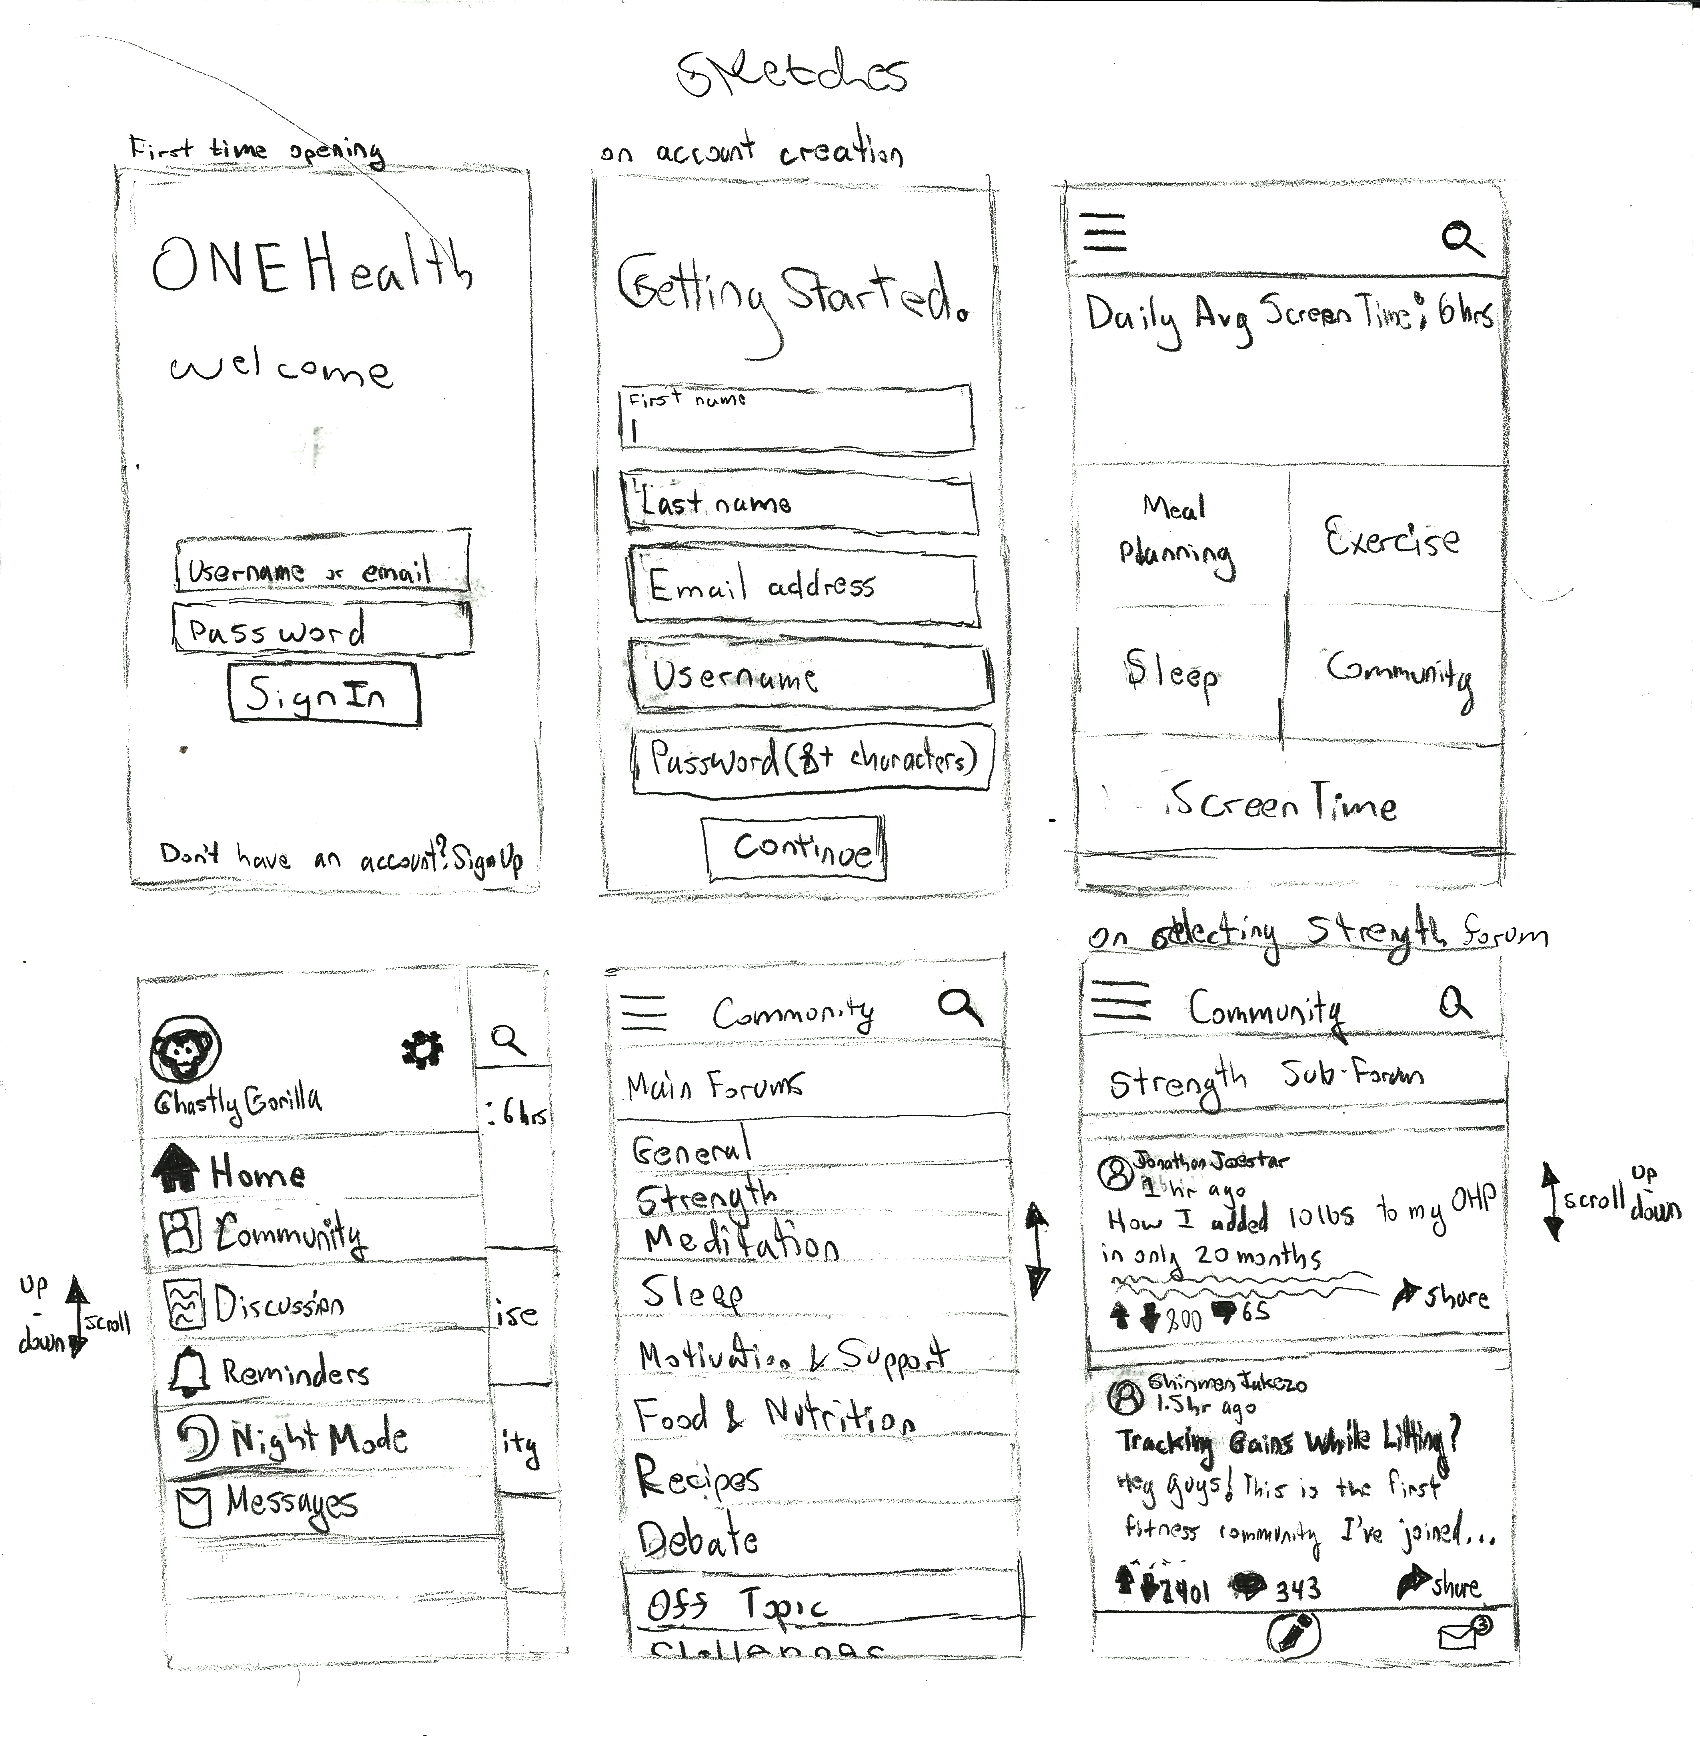 Sketches
First time opening
ONE Health
Welcome
Username or email
Password
Sign In
Don't have an account? Sign Up
on account creation
Getting Started.
First name
Last name
Email address
Username
Password (8+ characters)
Continue
Daily Avg Screen Time: 6 hrs
Meal
Planning
Exercise
Sleep
Community
Screen Time
Ghastly Gorilla
: 6 hrs
Home
Community
Discussion
ise
Reminders
Night Mode
ity
Messages
up
-
down
scroll
Community
Main Forums
General
Strength
Meditation
Sleep
Motivation & Support
Food & Nutrition
Recipes
Debate
Off Topic
Challenges
on selecting Strength forum
Community
Strength Sub-Forum
Jonathan Joestar
1 hr ago
How I added 10 lbs to my OHP
in only 20 months
800 65 share
Shinmen Takezo
1.5 hr ago
Tracking Gains While Lifting?
Hey guys! This is the first
fitness community I've joined...
2401 343 share
3
scroll
up
down